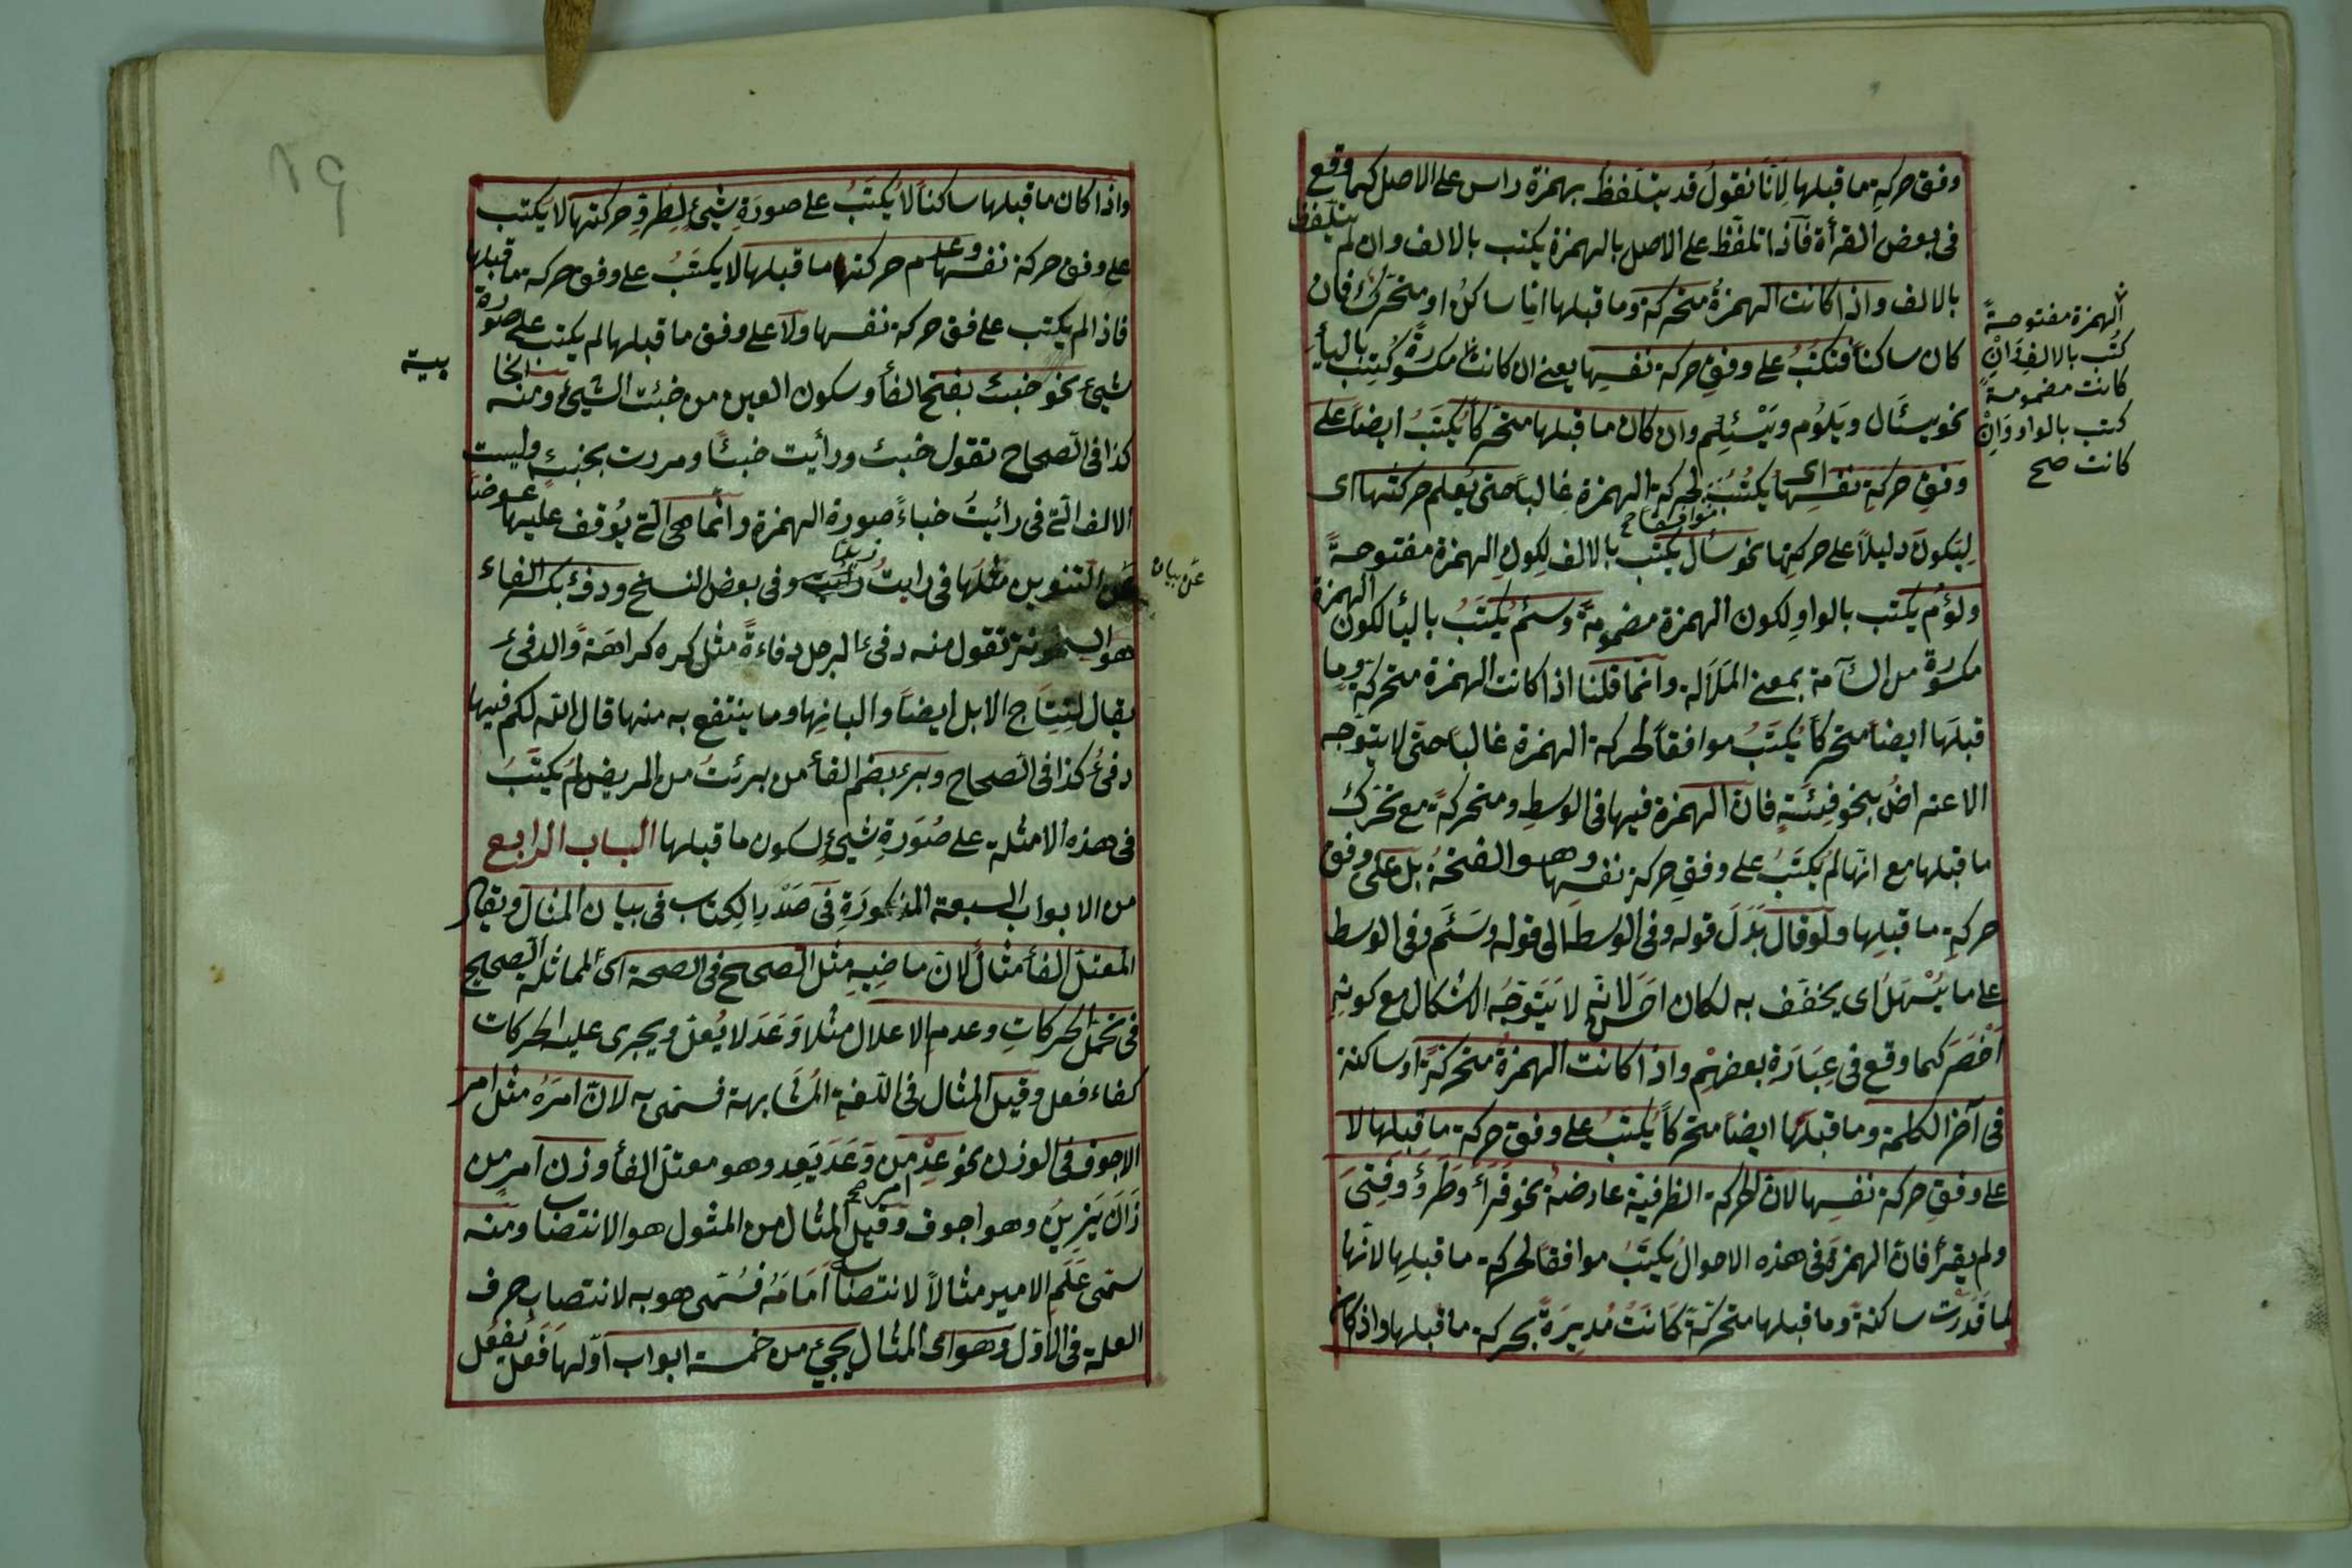 وفق حركةِ ما قبلها لِاَنّا نقولُ قد يتلفّظُ بهمزة راس على الاصل كما وقع
فى بعض القرأة فاذا تلفّظ على الاصل بالهمزة يكتب بالالف وان لم يتلفّظ
بالالف واذا كانت الهمزةُ متحركةً وما قبلها امّا ساكنٌ او متحركٌ فان
كان ساكناً فتكتبُ على وفقِ حركة نفسِها يعنى ان كانت مكسورةً كُتِبَ باليأ
نحو يسئَال ويَلوُم ويَسْئِلم وان كان ما قبلها متحركاً يُكتَبُ ايضاً على
وفقِ حركةِ نفسِها اى يكتبُ لحركة الهمزة غالباً حتى يُعلم حركتها اى
لِيَكونَ دليلاً على حركتِها نحو سأل يكتب بالالف لِكونِ الهمزة مفتوحةً
ولؤُم يكتب بالواوِ لِكون الهمزة مضمومةً وسئِم يُكتَبُ باليأ لكون الهمزة
مكسورة من السآمة بمعنى المَلَالة وانّما قلنا اذا كانت الهمزة متحركةً وما
قبلَها ايضاً متحركاً يُكتَبُ موافقاً لحركة الهمزة غالباً حتى لا يتوجّه
الاعتراضُ بنحو فِئَةٍ فانّ الهمزة فيها فى الوسطِ ومتحركةً مع تحرّك
ما قبلها مع انّها لم يُكتَبُ على وفقِ حركةِ نفسِها وهو الفتحةُ بل على وفق
حركةِ ما قبلِها ولو قال بَدَلَ قوله وفى الوسط الى قوله وسَئَم وفى الوسط
على ما يُسْهَلُ اى يخفّف به لكان احسن لانّه لا يَتَوَجّهُ الاشكال مع كونِهِ
اَخْصَرَ كما وقع فى عِبَارَةِ بعضِهِم واذا كانت الهمزةُ متحركةً او ساكنة
فى آخر الكلمة وما قبلَها ايضاً متحركاً يُكتبُ على وفق حركة ما قبلِها لا
على وفقِ حركة نفسِها لانّ الحركة الظرفيّة عارضةٌ نحو قَرَأَ وطَرُؤَ وفَتِئَ
ولم يقرأ فانّ الهمزةَ فى هذه الاحوالُ يُكتَبُ موافقاً لحركةِ ما قبلِها لانّها
لما قَدَرَت ساكنةً وما قبلها متحركةً كانَتْ مُدبِرَةً بحركة ما قبلها واذا كان
الهمزة مفتوحةً
كُتب بالالفِ وَاِنْ
كانت مضمومةً
كتب بالواو وَاِنْ
كانت صح
موافقا صح
واذا كان ما قبلها ساكناً لا يُكتَبُ على صورَةِ شيئٍ لِطُرُوّ حركتها لا يكتب
على وفق حركة نفسها وعلم حركتها ما قبلها لا يكتَبُ على وفق حركة ما قبلها
فاذا لم يكتب على وفق حركة نفسها ولا على وفق ما قبلها لم يكتب على صورة
شيئ نحو خبئ بفتح الفأ وسكون العين من خبئت الشيئ ومنه
كذا فى الصحاح تقول خبئ ورأيت خبئًا ومررت بخبئٍ وليست
الالف الّتى فى رأيتُ خباءً صورة الهمزة وانّما هى الّتى يُوقف عليها عوضا
عن التنوين مثلَها فى رأيتُ زيدا وفى بعض النسخ ودفؤ بكسر الفاء
هو السخونة تقول منه دفئ الرجل دفاءةً مثل كره كراهةً والدفئ
يقال لِنِتَاج الابل ايضاً والبانِها وما ينتفع به منها قال الله لكم فيها
دفئُ كذا فى الصحاح وبرء بضم الفأ من برئتُ من المريض لم يكتَبُ
فى هذه الامثلة على صُوَرةِ شيئٍ لسكون ما قبلها الباب الرابع
من الابواب السبعة المذكورَةِ فى صَدْرِ الكِتابِ فى بيان المثال ويقال
المعتلّ الفأ مثالٌ لانّ ماضِيهِ مثل الصحيح فى الصحة اى لمماثلة الصحيح
فى تحمّل الحركاتِ وعدم الاعلال مثلا وَعَدَ لا يُعلّ ويجرى عليه الحركات
كفاء فعل وقيل المثال فى اللغة المُشَابهة فسمّى به لانّ امرَهُ مثل امر
الاجوف فى الوزن نحو عِدْ من وَعَدَ يَعِد وهو معتلّ الفأ وزِن امر من
زَانَ يَزِينُ وهو اجوف وقيل المثال من المثول هو الانتصاب ومنه
سمّى عَلَم الامير مثالاً لانتصابه اَمَامَهُ فسُمّى هو به لانتصاب حرف
العلة فى الاوّل وهو اى المثال يجيئ من خمسة ابواب اوّلها فَعَلَ يفعُل
امر صح